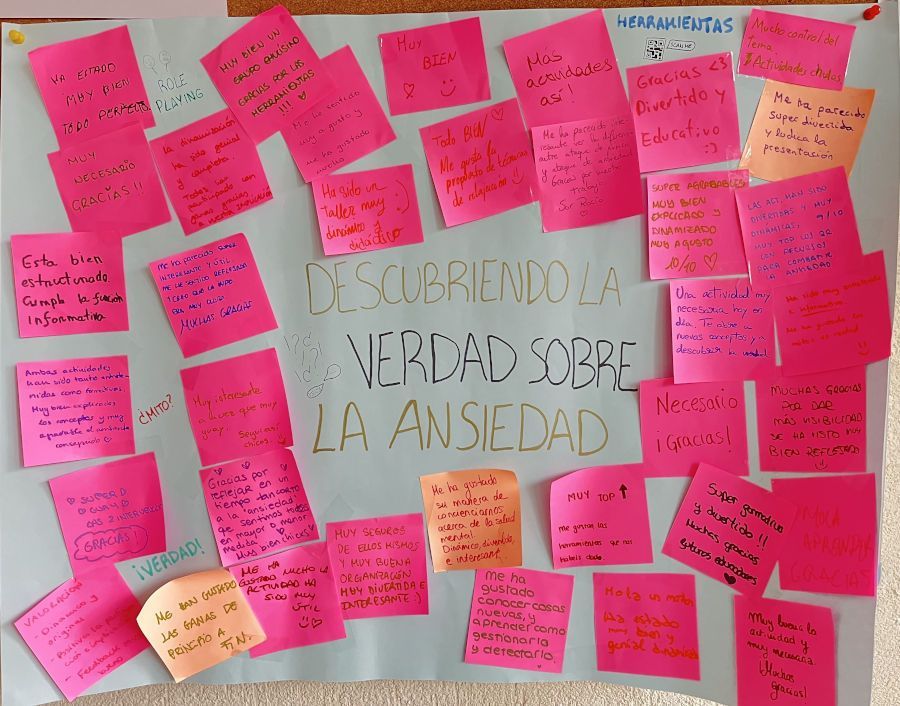 HERRAMIENTAS
SCAN ME
VA ESTADO
MUY BIEN
TODO PERFECTO
ROLE
PLAYING
MUY BIEN UN
GRUPO
GRACIAS POR LAS
HERRAMIENTAS
!!!
MUY
BIEN
Más
actividades
así!
Gracias <3
Divertido y
Educativo
:)
Mucho control del
tema
Actividades chulas
Me ha parecido
super divertida
y lúdica la
presentación
MUY
NECESARIO
GRACIAS!!
La dinamización
ha sido genial
y completa.
Me he sentido
muy a gusto y
me ha gustado
mucho
Todo BIEN
Me gusta la
propósito de técnicas
de relajación
Me ha parecido inte-
resante ver la diferencia
entre ataque de pánico
y ataque de ansiedad.
Gracias por vuestro
trabajo.
Sor Rocío
Ha sido un
Taller muy
dinámico y
didáctico
:)
SUPER AGRADABLES
MUY BIEN
EXPLICADO Y
DINAMIZADO
MUY AGUSTO
10/10
LAS ACT. HAN SIDO
DIVERTIDAS Y MUY
DINÁMICAS, 9/10
MUY TOP LOS QR
CON RECURSOS
PARA COMBATIR
LA ANSIEDAD
Esta bien
estructurado.
Cumple la función
Informativa
Me ha parecido SUPER
INTERESANTE Y ÚTIL.
ME HE SENTIDO REFLEJADA
MUCHAS GRACIAS
DESCUBRIENDO LA
VERDAD SOBRE
LA ANSIEDAD
Una actividad muy
necesaria hoy en
día. Te abre a
nuevos conceptos y a
descubrir la verdad
Ha sido muy
informativa.
Me ha gustado los
mitos vs verdad
Ambas actividades
han sido tanto entrete-
nidas como formativas.
Muy bien explicados
los conceptos y muy
agradable el ambiente
conseguido
¿MITO?
Muy interesante
a la vez que muy
guay.
Seguí así
chicos.
Necesario
¡Gracias!
MUCHAS GRACIAS
POR DAR
MÁS VISIBILIDAD
SE HA VISTO MUY
BIEN REFLEJADO
SUPER
GUAY
LAS 2 INTERVENCI
GRACIAS!
Gracias por
reflejar en un
tiempo tan corto
a la "ansiedad"
que sentimos todos
en mayor o menor
medida
MUY BIEN CHICXS!
Me ha gustado
su manera de
concienciarnos
acerca de la salud
mental.
Dinámico, divertido,
e interesante.
MUY TOP ↑
me gustan las
herramientas que nos
habéis dado
Super formativo
y divertido!!
Muchas gracias
futuros educadores
MOLA
APRENDER
GRACIAS
¡VERDAD!
MUY SEGUROS
DE ELLOS MISMOS
Y MUY BUENA
ORGANIZACIÓN
MUY DIVERTIDA E
INTERESANTE :)
VALORACIÓN
- Dinámico y
original
- Feedback
ME HAN GUSTADO
LAS GANAS DE
PRINCIPIO A
FIN.
ME HA
GUSTADO MUCHO LA
ACTIVIDAD HA
SIDO MUY
ÚTIL
me ha
gustado
conocer cosas
nuevas, y a
aprender como
gestionarla
y detectarlo.
Mola un montón
Ha estado
muy bien y
genial dinámica
Muy buena la
actividad y
muy necesaria.
¡Muchas
Gracias!